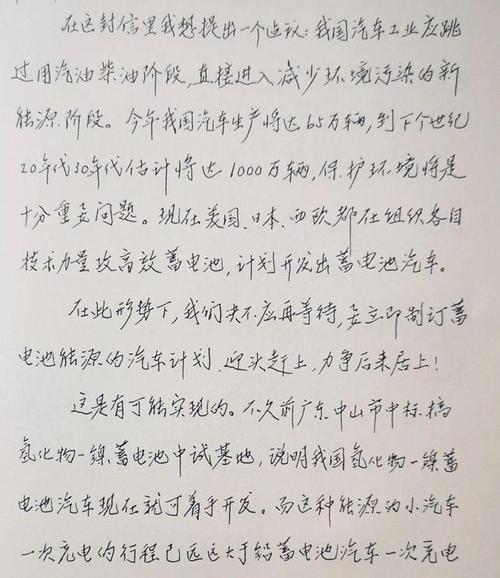 在这封信里我想提出一个建议：我国汽车工业应跳
过用汽油柴油阶段，直接进入减少环境污染的新
能源阶段。今年我国汽车生产将达65万辆，到下个世纪
20年代30年代估计将达1000万辆，保护环境将是
十分重要问题。现在美国、日本、西欧都在组织各自
技术力量攻高效蓄电池，计划开发出蓄电池汽车。
在此形势下，我们决不应再等待，要立即制订蓄
电池能源的汽车计划，迎头赶上，力争后来居上！
这是有可能实现的。不久前广东中山市中标，搞
氢化物—镍蓄电池中试基地，说明我国氢化物—镍蓄
电池汽车现在就可着手开发。而这种能源的小汽车
一次充电的行程已远远大于铅蓄电池汽车一次充电